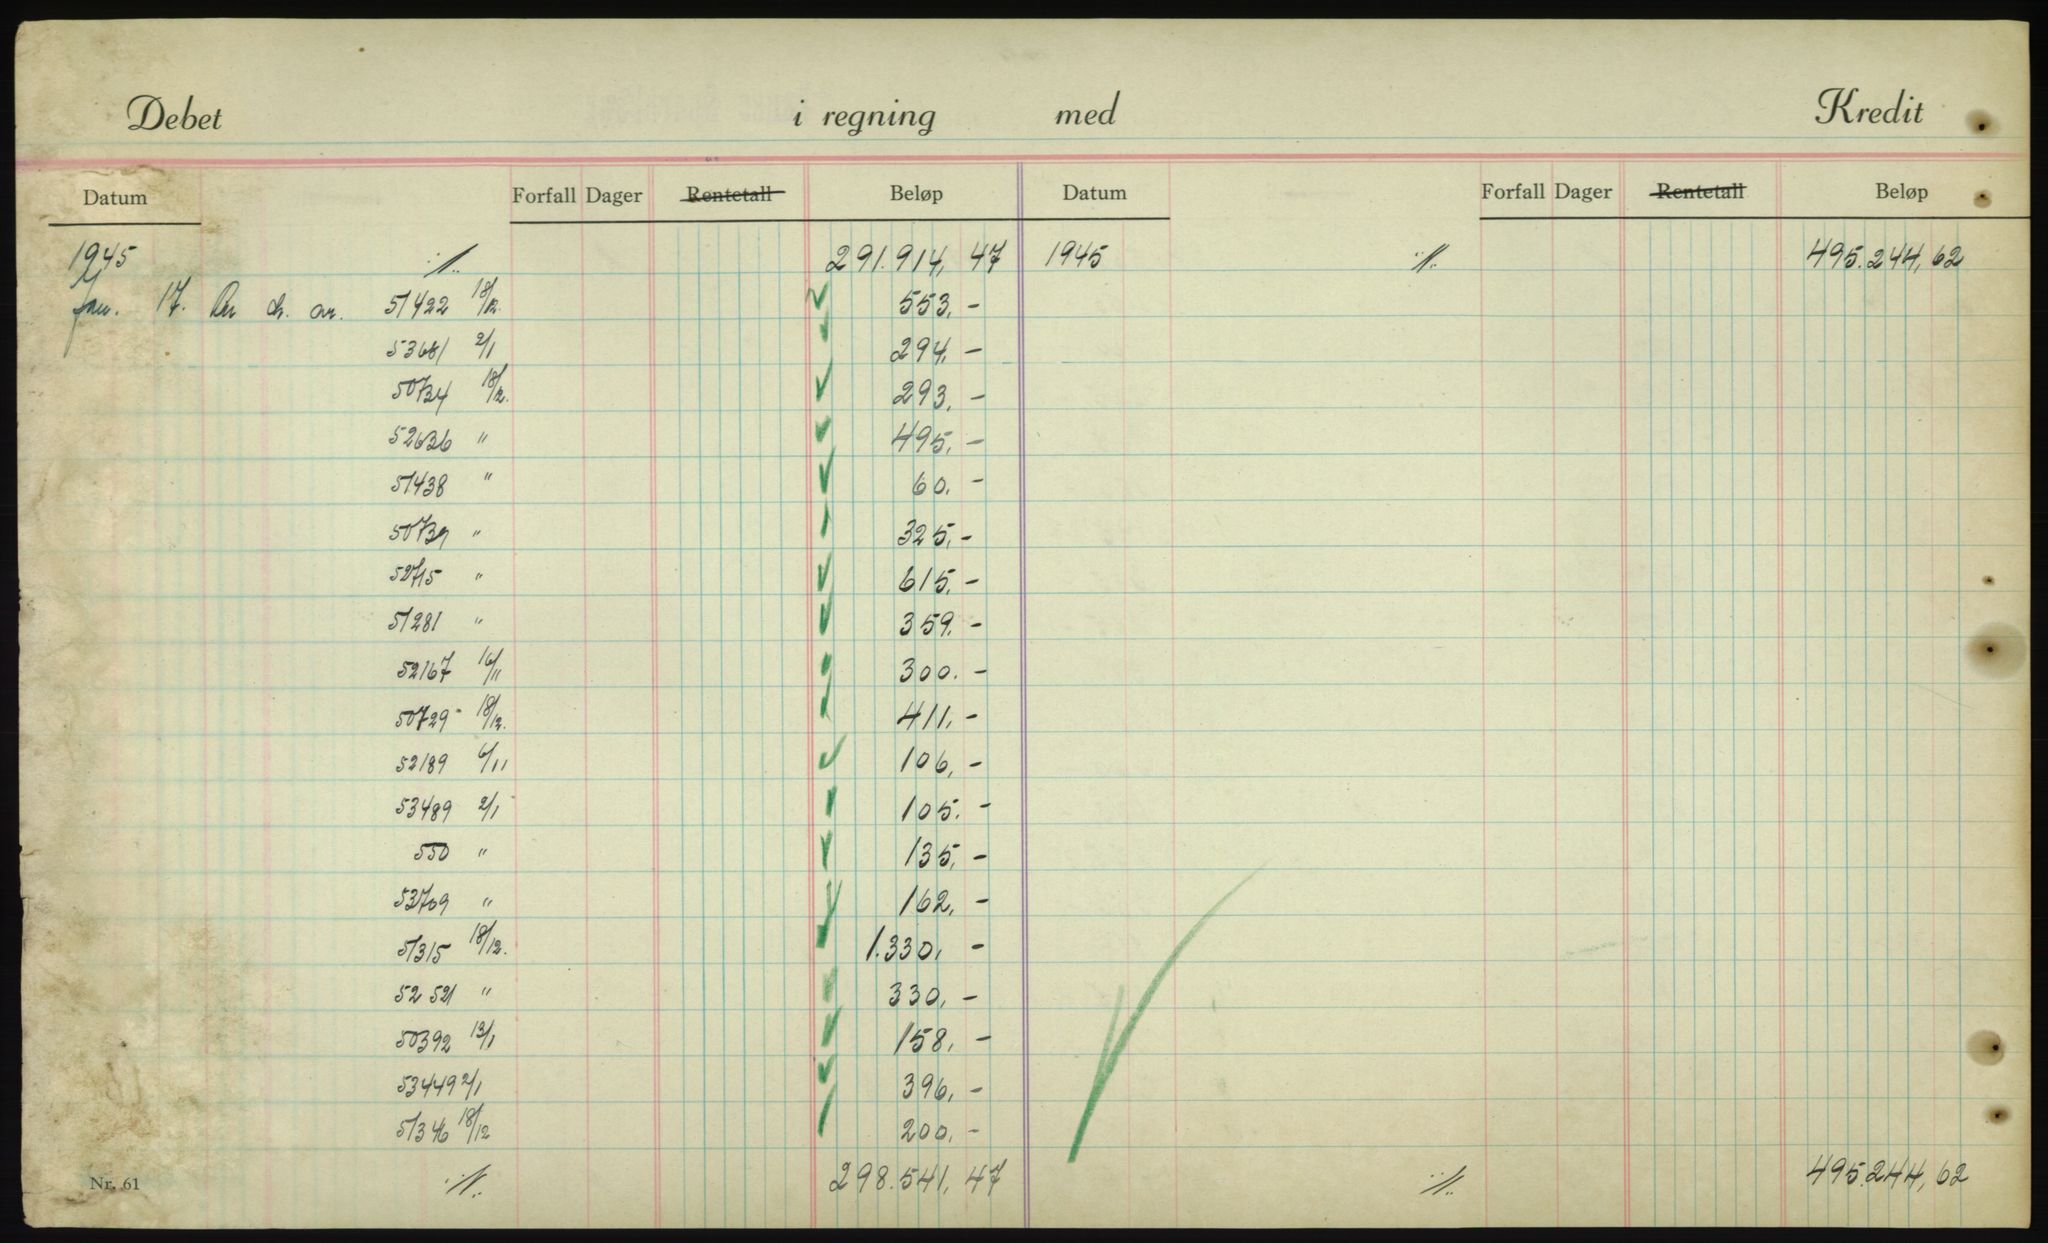 Debet i regning med Kredit
Datum Forfall Dager Rentetall Beløp Datum Forfall Dager Rentetall Beløp
1945 ·/. 291.914,47 1945 ·/. 495.244,62
Jan. 17. 51422 18/12. 553,-
53681 2/1 294,-
50734 18/12. 293,-
52636 " 495,-
51438 " 60,-
50739 " 325,-
52715 " 615,-
51281 " 359,-
52167 16/11 300.-
50729 18/12. 411,-
52189 6/11 106,-
53489 2/1 105.-
550 " 135,-
53709 " 162,-
51315 18/12. 1.330,-
52521 " 330,-
50392 13/1 158,-
53449 2/1 396,-
51346 18/12 200,-
Nr. 61 ·/. 298.541,47 ·/. 495.244,62